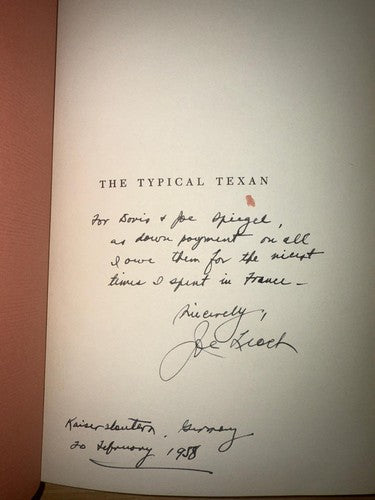 THE TYPICAL TEXAN
For Doris & Joe Spiegel,
as down payment on all
I owe them for the nicest
times I spent in France —
Sincerely,
Joe
Kaiserslautern, Germany
20 February 1958